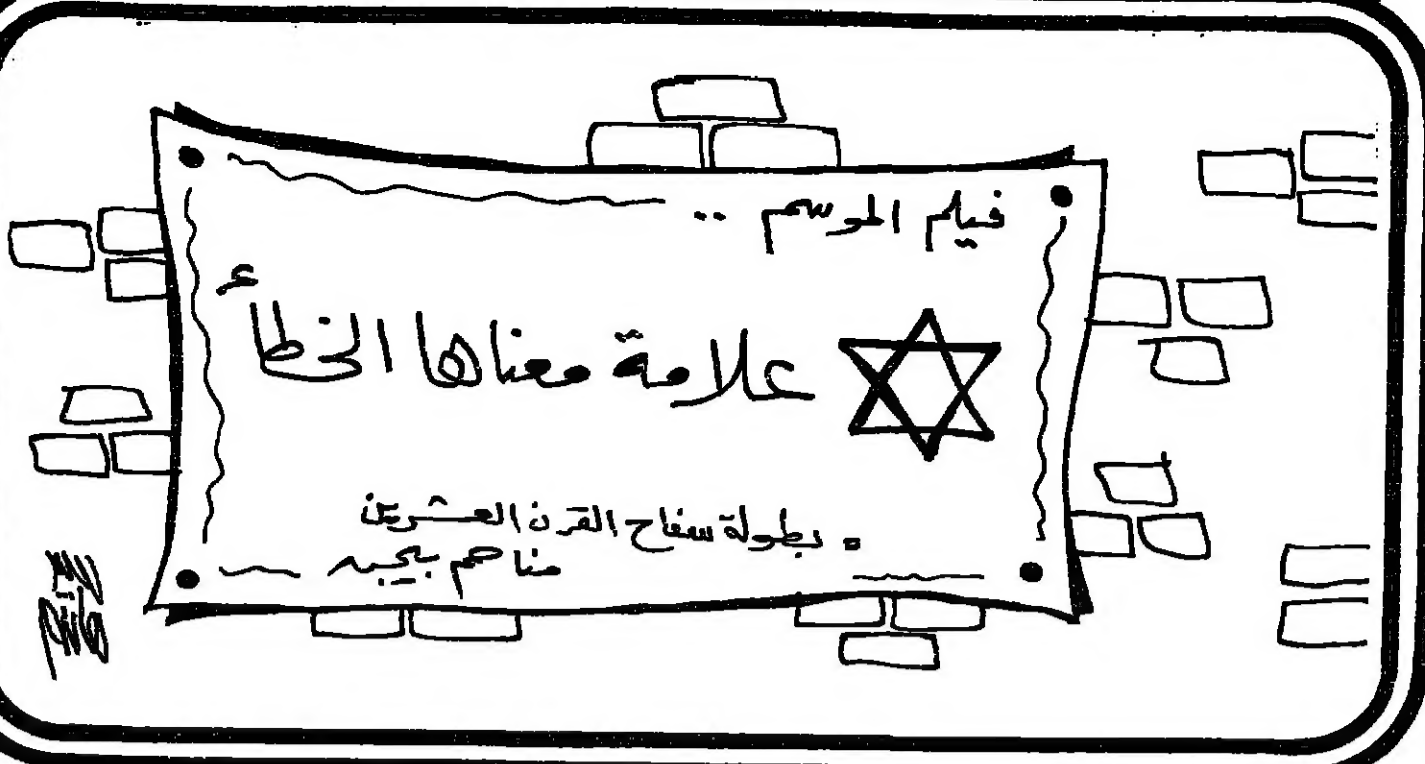 فيلم الموسم ..
علامة معناها الخطأ
بطولة سفاح القرن العشرين
مناحم بيجين